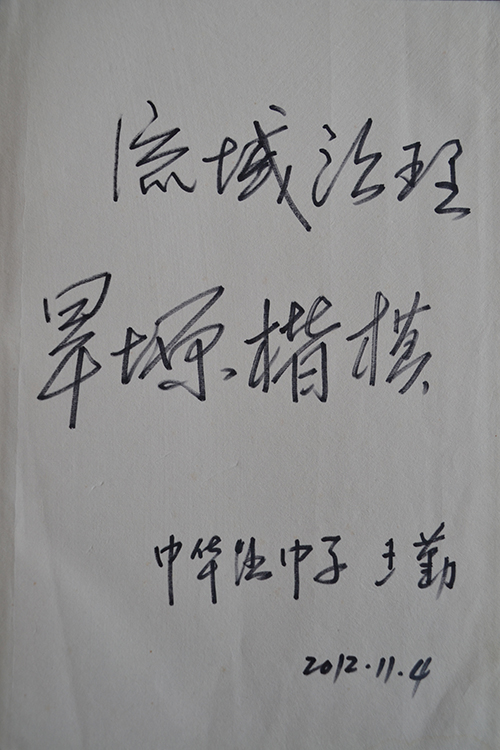 流域治理
旱塬楷模
中华中子 王勤
2012.11.4